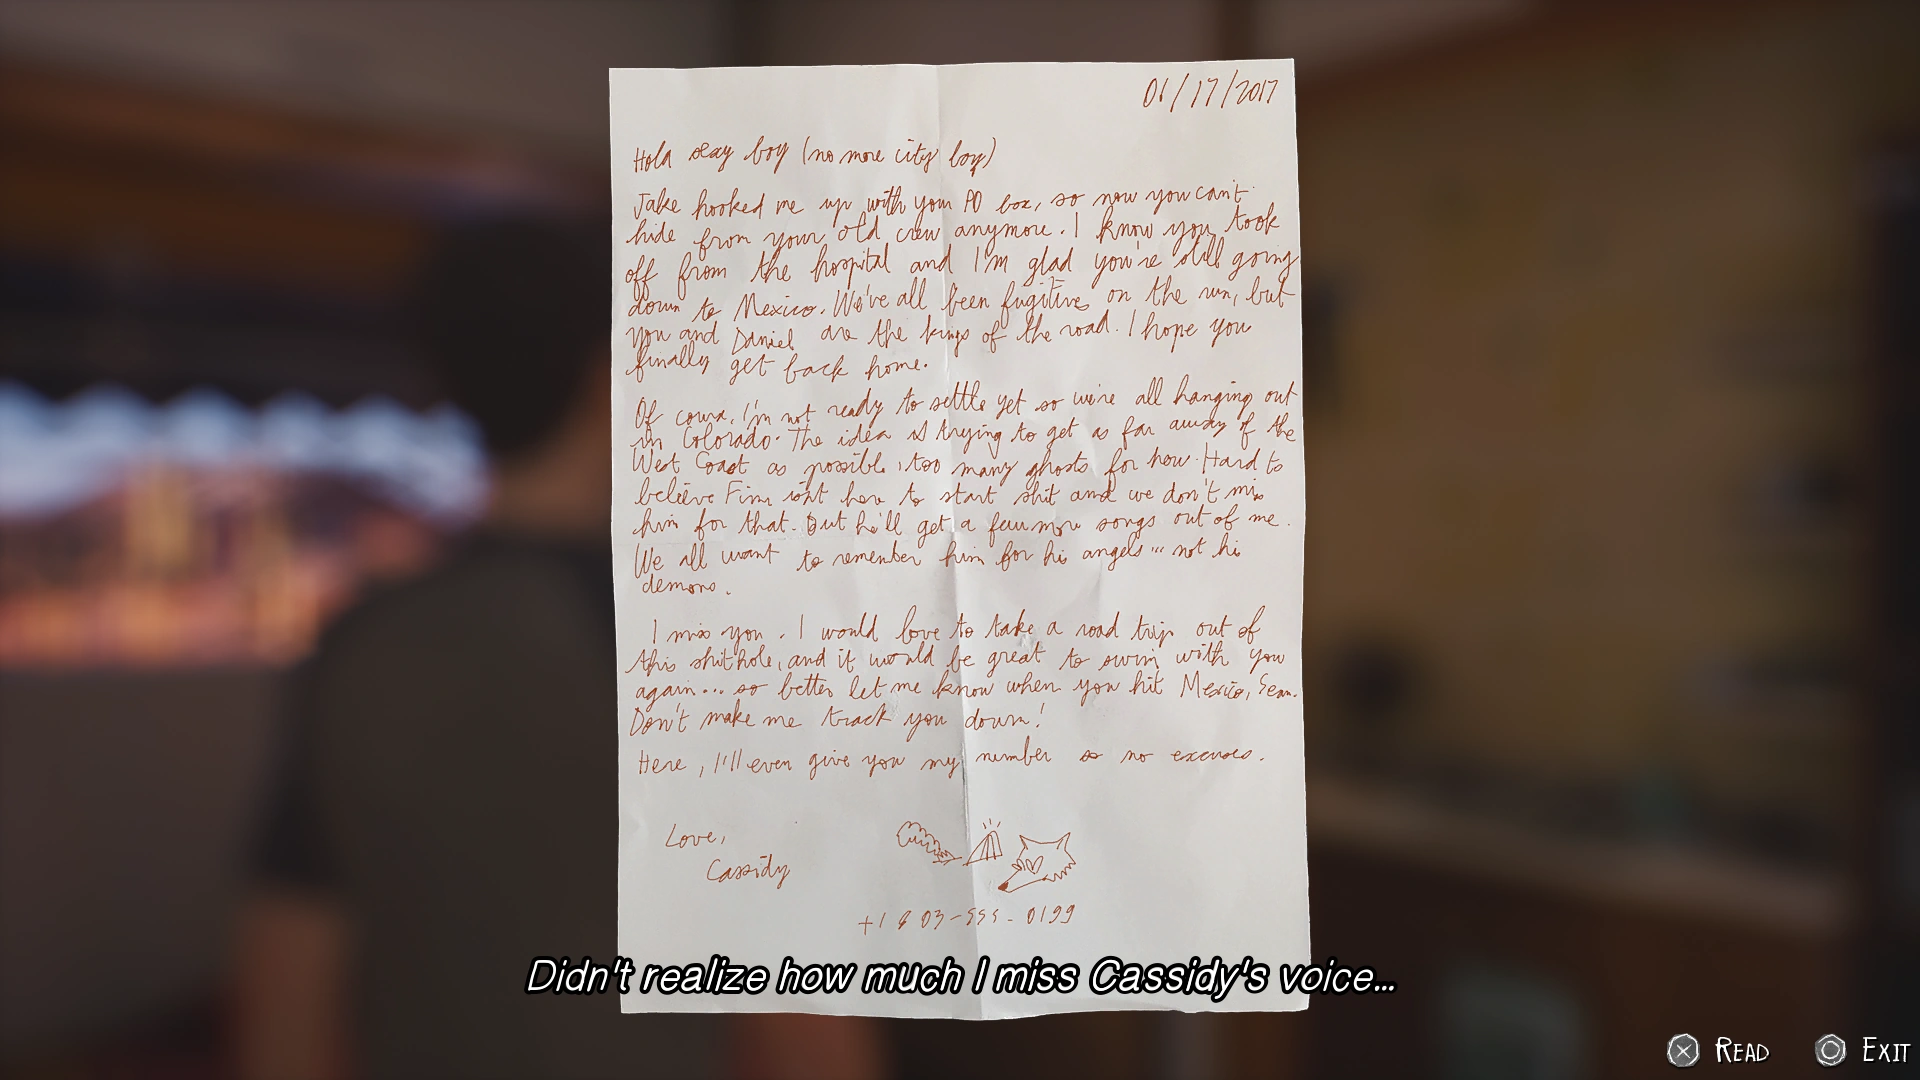 01/17/2017
Hola sexy boy (no more city boy)
Jake hooked me up with your PO box, so now you can't
hide from your old crew anymore. I know you took
off from the hospital and I'm glad you're still going
down to Mexico. We've all been fugitives on the run, but
you and Daniel are the kings of the road. I hope you
finally get back home.
Of course, I'm not ready to settle yet so we're all hanging out
in Colorado. The idea is trying to get as far away of the
West Coast as possible, too many ghosts for now. Hard to
believe Finn isn't here to start shit and we don't miss
him for that. But he'll get a few more songs out of me.
We all want to remember him for his angels... not his
demons.
I miss you. I would love to take a road trip out of
this shithole, and it would be great to swim with you
again... so better let me know when you hit Mexico, Sean.
Don't make me track you down!
Here, I'll even give you my number so no excuses.
Love,
Cassidy
+1 803-555-0199
Didn't realize how much I miss Cassidy's voice...
READ EXIT